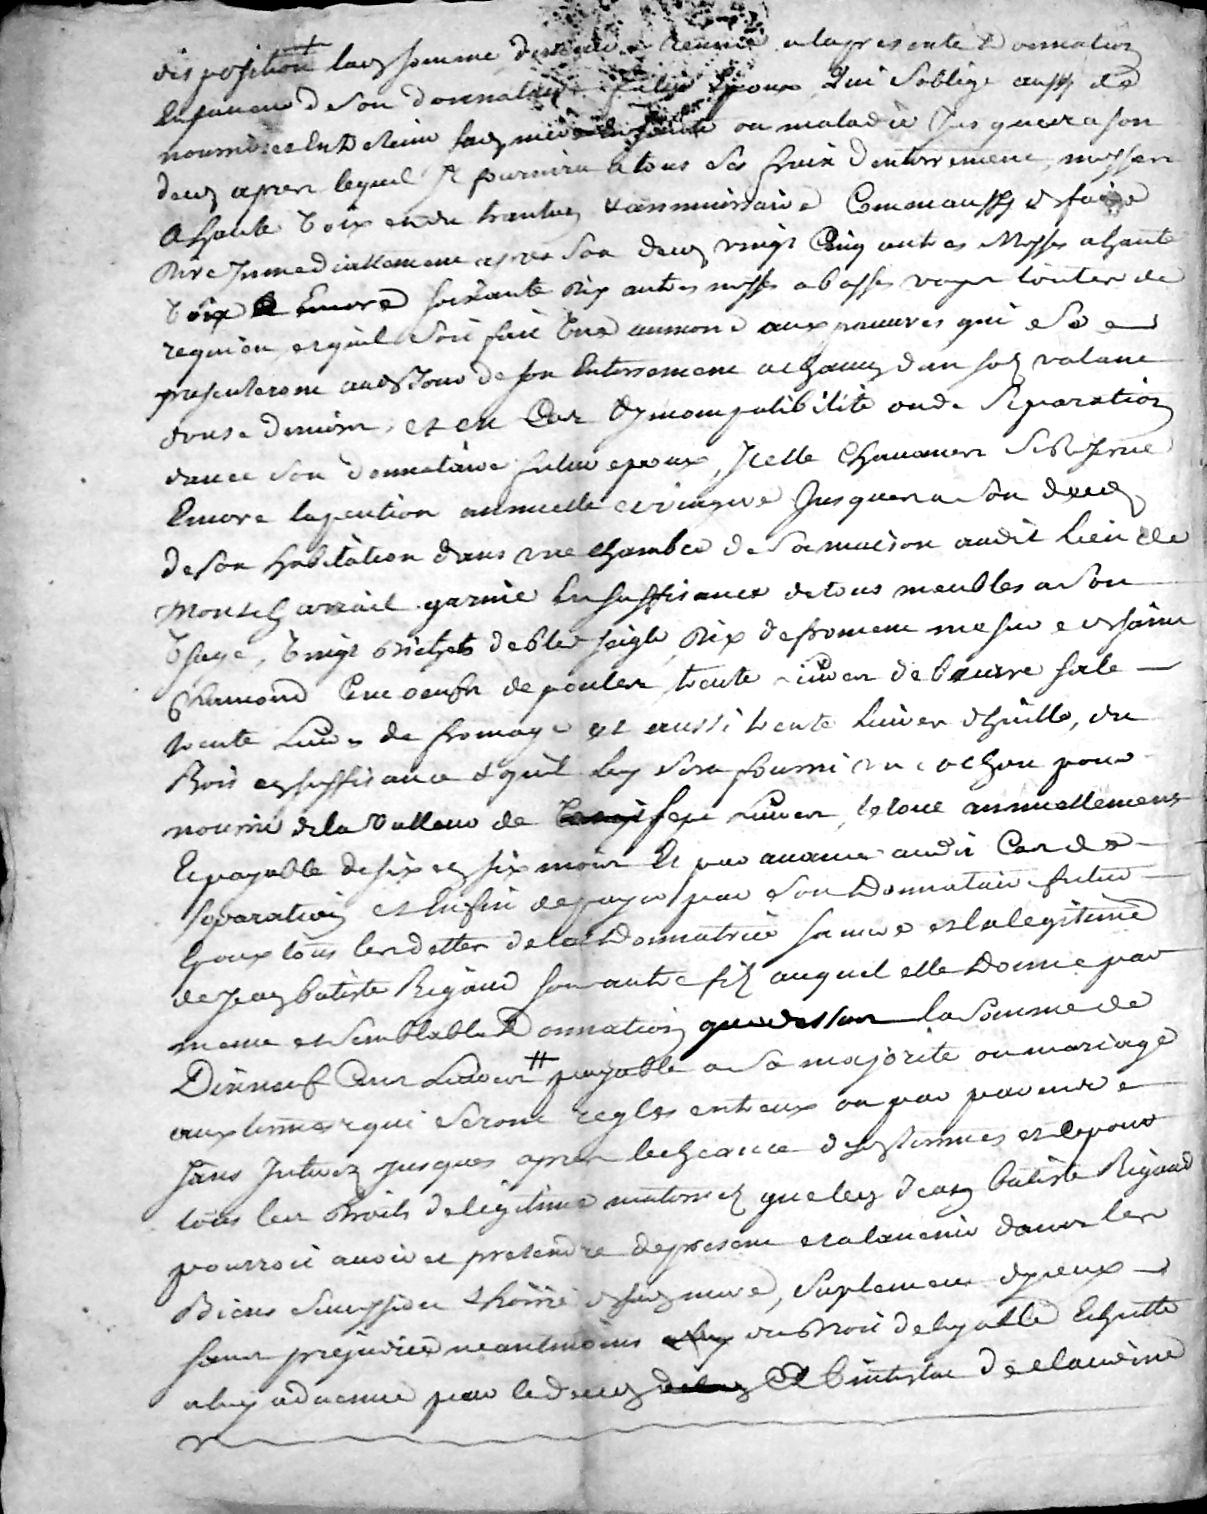 disposition lad somme demeure reunie a la presente Donnation
en faveur de son donnataire futur Epoux, Qui s'oblige aussy de
nourrir et Entretenir sad mere En santé ou maladie Jusques a son
deced apres lequel Il fournira a tous ses fraix d'enterrement, messes
a haute voix et du trantain & annniversaire Comm'aussy de faire
dire Immediattement apres son deced vingt Cinq autres Messes a haute
voix Encore soixante dix autres messes a basses voix toutes de
requiem, et quil soit fait Une aumone aux pauvres qui se
presenteront aud Jour de son Enterrement a chacun d'un sol valant
douze deniers, et en Cas d'Jncompatibilité ou de Separation
d'avec son donnataire futur epoux, Jcelle Chavanon se Reserve
Encore la pention annuelle et viagere Jusques a son deced
de son habitation dans une chambre de sa maison audit lieu de
Montcharrail garnie En suffisance de tous meubles a son
Usage, Vingt bichets de bled seigle, dix de froment mesure de saint
Chamond Cent oeufs de poules, trente Livres de beurre salé
trente Livres de fromage et aussi trente Livres d'huille, du
Bois en suffisance & quil luy sera fourni un cochon pour
nourrir de la Valleur de sept Livres, le tout annuellement
Et payable de six en six mois Et par avance audit Cas de
separation et Enfin de payer par son Donnataire futur
Epoux tous les dettes de la Donnatrice sa mere et la legitime
de Jean batiste Rigaud son autre fils auquel elle Donne par
meme et semblable Donnation que dessus la somme de
Dixneuf Cent Livres # payable a sa majorite ou mariage
aux termes qui seront reglés entr'eux ou par parents
sans Jnterets Jusques apres lecheance desd termes et le pour
tous les Droits de legitime maternels que led Jean batiste Rigaud
pourroit avoir et pretendre de present et a l'avenir dans les
Biens succession & hoirie de sad mere, suplement d'jceux
sans prejudice neantmoins du Droit de legalle Echutte
a luy advenue par le deced Et Ab intestat de claudine